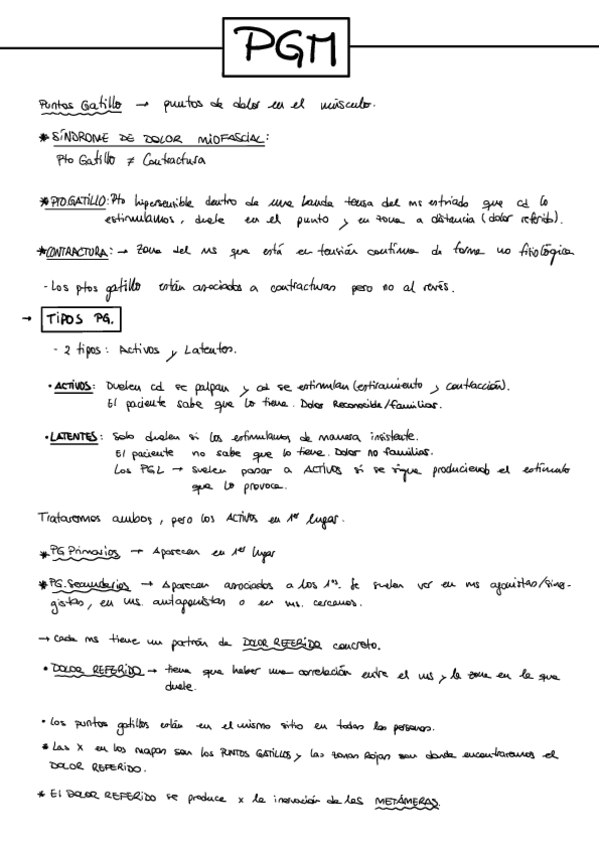 PGM
Puntos Gatillo → puntos de dolor en el músculo.
* SÍNDROME DE DOLOR MIOFASCIAL:
Pto Gatillo ≠ Contractura
* PTO GATILLO: Pto hipersensible dentro de una banda tensa del ms estriado que cd lo
estimulamos, duele en el punto y en zona a distancia (dolor referido).
* CONTRACTURA: → Zona del ms que está en tensión continua de forma no fisiológica
- Los ptos gatillo están asociados a contracturas pero no al revés.
→ TIPOS PG.
- 2 tipos: Activos y Latentes.
• ACTIVOS: Duelen cd se palpan y cd se estimulan (estiramiento y contracción).
El paciente sabe que lo tiene. Dolor Reconocible/familiar.
• LATENTES: Solo duelen si los estimulamos de manera insistente.
El paciente no sabe que lo tiene. Dolor no familiar.
Los PGL → suelen pasar a ACTIVOS si se sigue produciendo el estímulo
que lo provoca.
Trataremos ambos, pero los ACTIVOS en 1er lugar.
* PG Primarios → Aparecen en 1er lugar
* PG. Secundarios → Aparecen asociados a los 1os. Se suelen ver en ms agonistas/siner-
gistas, en ms. antagonistas o en ms. cercanos.
→ Cada ms tiene un patrón de DOLOR REFERIDO concreto.
• DOLOR REFERIDO → tiene que haber una correlación entre el ms y la zona en la que
duele.
• Los puntos gatillos están en el mismo sitio en todas las personas.
* Las X en los mapas son los PUNTOS GATILLOS y las zonas Rojas son donde encontraremos el
DOLOR REFERIDO.
* El DOLOR REFERIDO se produce x la inervación de las METÁMERAS.